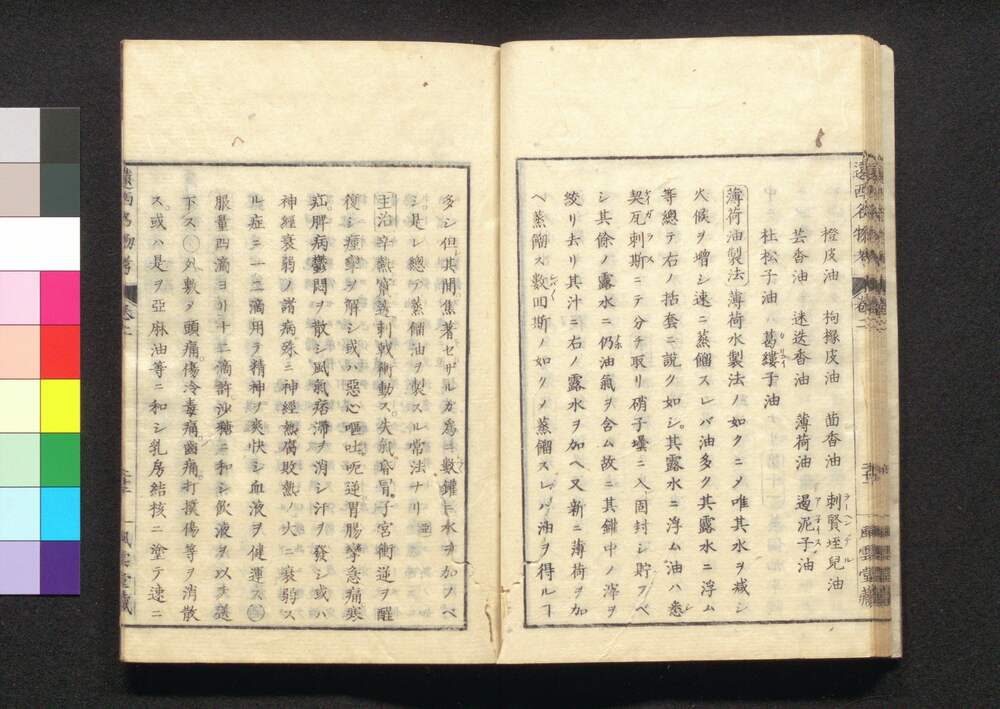 橙皮油 枸櫞皮油 茴香油 刺賢垤兒油
芸香油 迷迭香油 薄荷油 遏泥子油
杜松子油 葛縷子油
薄荷油製法 薄荷水製法ノ如クニメ唯其水ヲ減シ
火候ヲ増シ速ニ蒸餾スレバ油多ク其露水ニ浮ム
等總テ右ノ括套ニ說ク如シ其露水ニ浮ム油ハ悉
契瓦刺斯ニテ分チ取リ硝子壜ニ入固封シ貯フベ
シ其餘ノ露水ニ仍油氣ヲ含ム故ニ其鑵中ノ滓ヲ
絞リ去リ其汁ニ右ノ露水ヲ加ヘ又新ニ薄荷ヲ加
ヘ蒸餾ス數回斯ノ如クメ蒸餾スレハ油ヲ得ルヿ
遠西名物考 卷二 風雲堂藏
多シ但其間焦著セザルガ爲ニ數鑵ニ水ヲ加フベ
シ是レ總テ蒸餾油ヲ製スル常法ナリ
主治 辛熱竄透刺戟衝動ス失氣昏冒子宮衝逆ヲ醒
復シ瘞攣ヲ解シ或ハ惡心嘔吐呃逆胃腸攣急痛寒
疝脾病鬱悶ヲ散シ風氣痞滯ヲ消シ汗ヲ發シ或ハ
神經衰弱ノ諸病殊ニ神經熱腐敗熱ノ大ニ衰弱ス
ル症ニ一二滴用ヲ精神ヲ爽快シ血液ヲ健運ス
服量四滴ヨリ十二滴許沙糖ニ和シ飲液ヲ以テ送
下ス 外敷 頭痛傷冷毒痛齒痛打撲傷等ヲ消散
ス或ハ是ヲ亞麻油等ニ和シ乳房結核ニ塗テ速ニ
遠西名物考 卷二 風雲堂藏